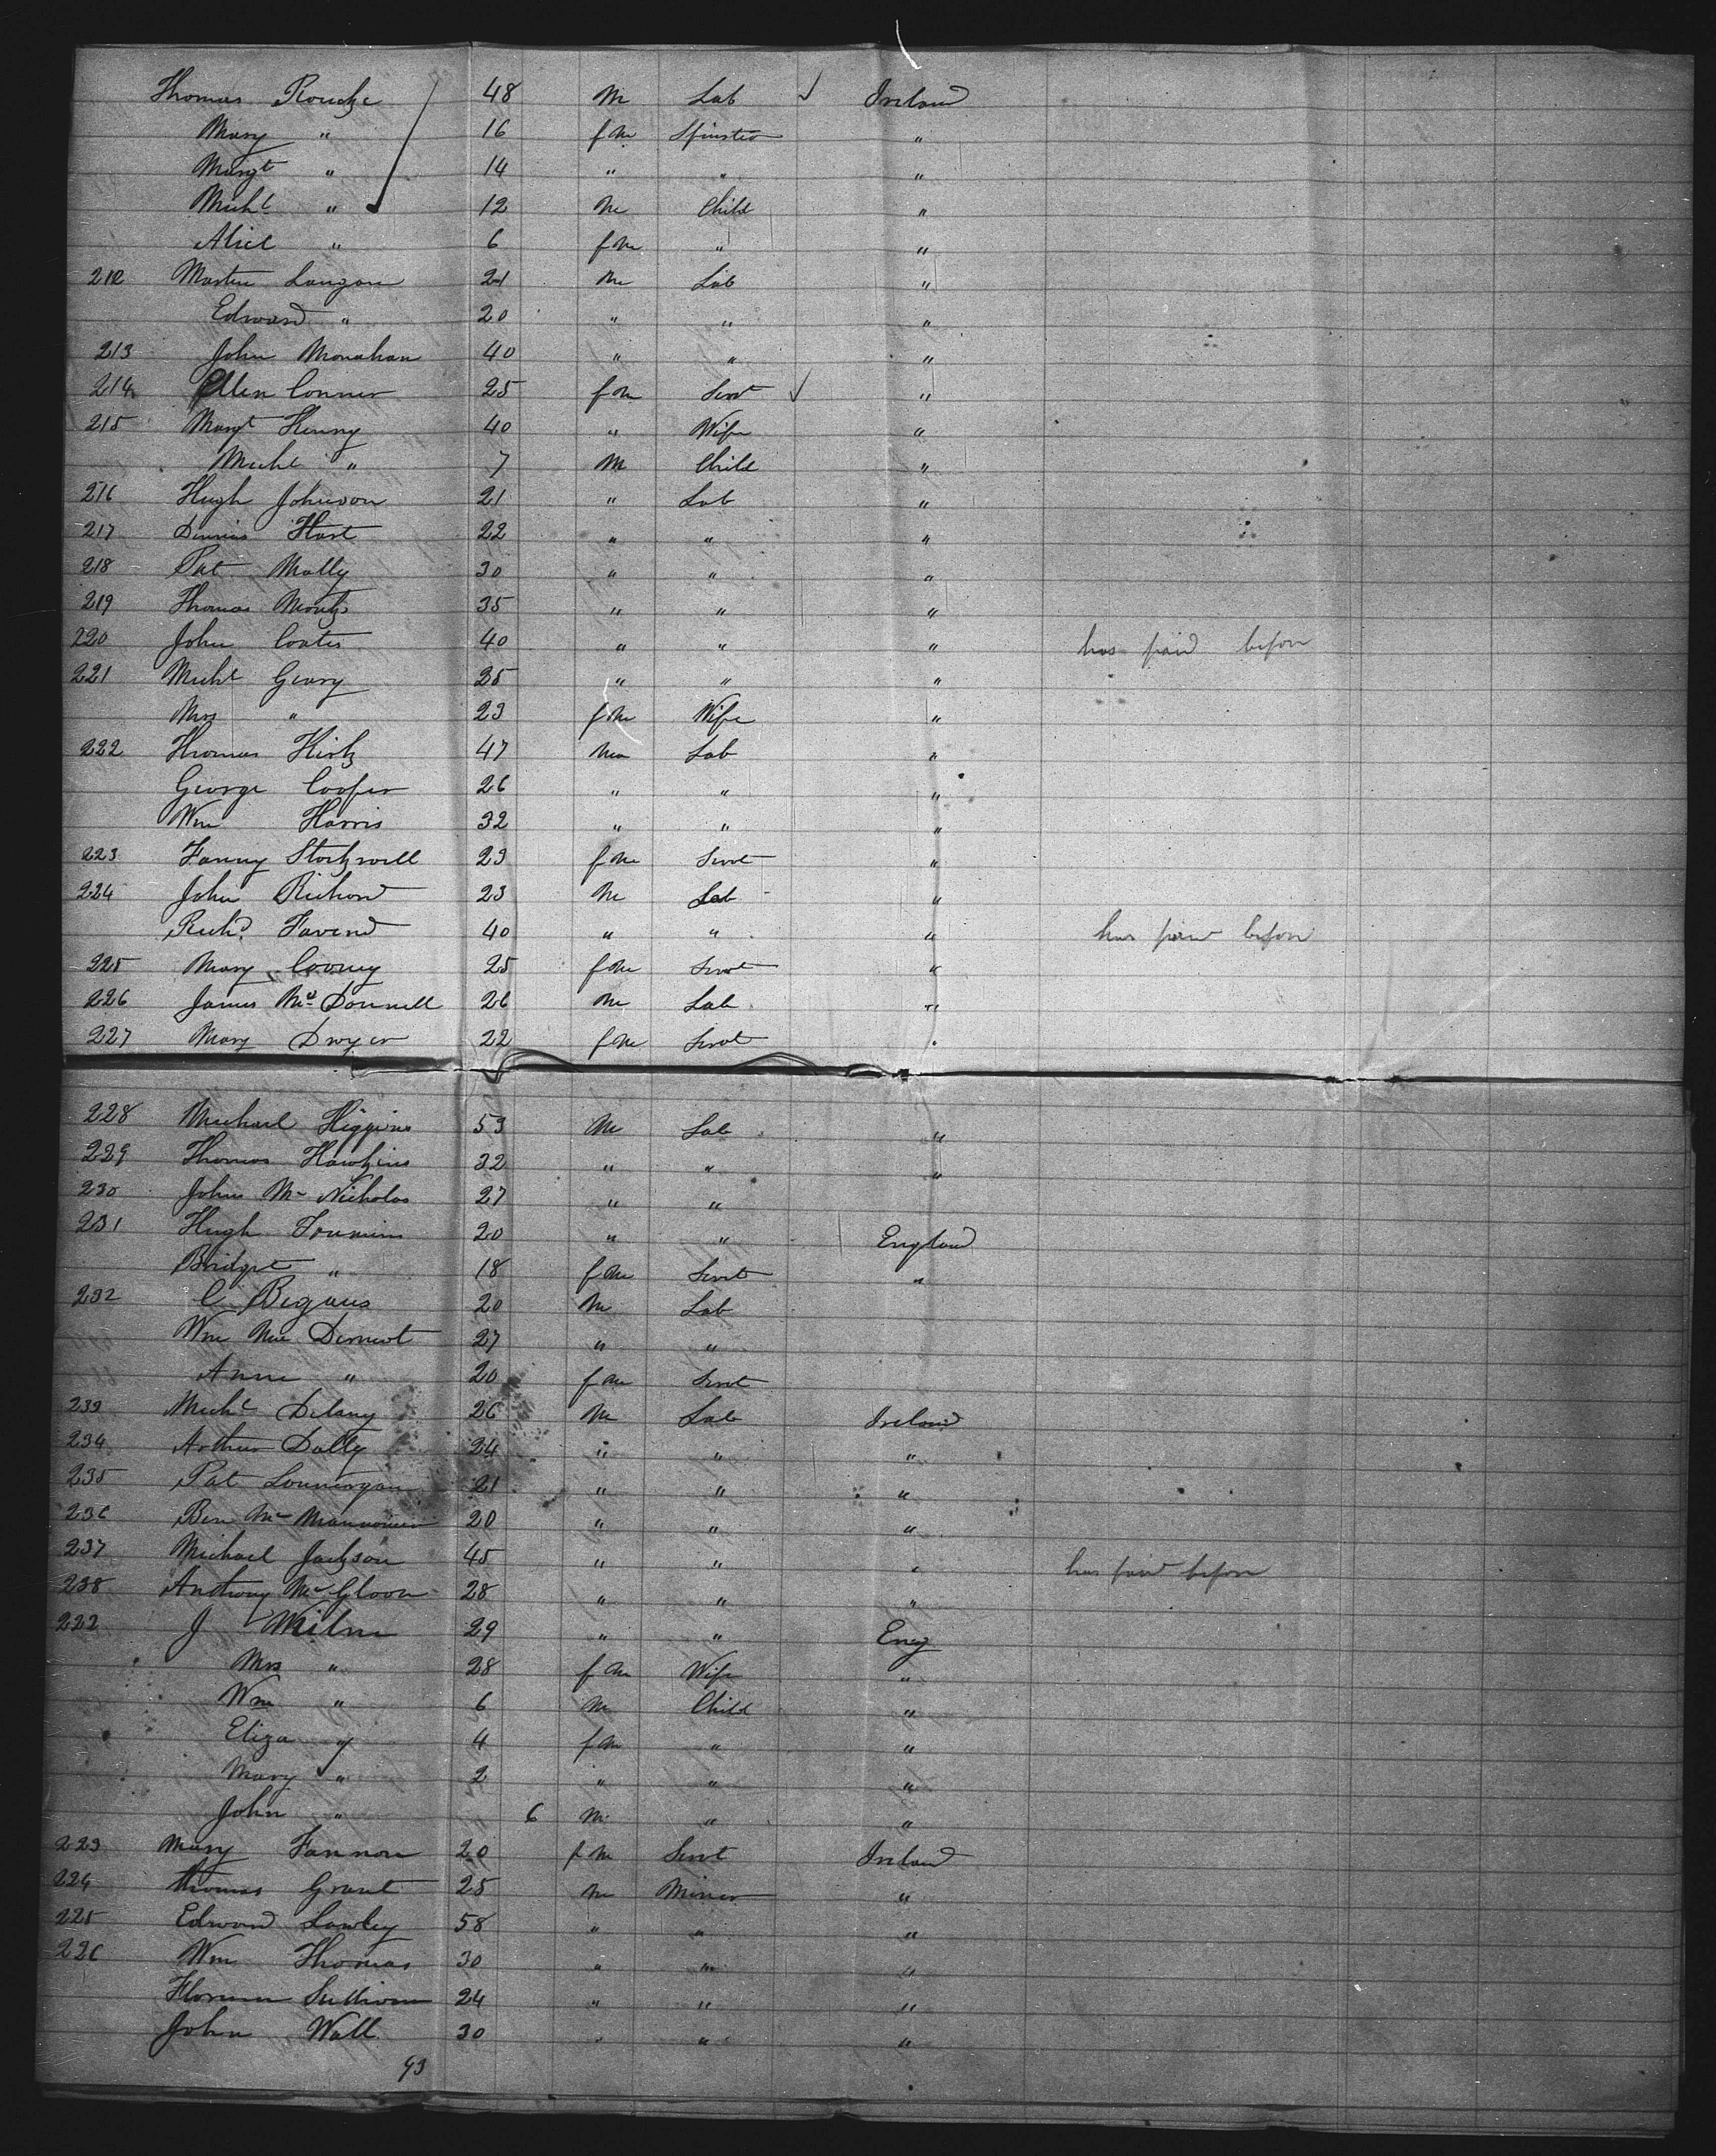 Thomas Rourke 48 M Lab ✓ Ireland
Mary " 16 fm Spinster "
Margt " 14 " " "
Michl " 12 M Child "
Alice " 6 fm " "
212 Martin Langan 21 M Lab "
Edward " 20 " " "
213 John Monahan 40 " " "
214 Ellen Conner 25 fm Servt ✓ "
215 Margt Henry 40 " Wife "
Michl " 7 M Child "
216 Hugh Johnson 21 " Lab "
217 Dennis Hart 22 " " "
218 Pat Mally 30 " " "
219 Thomas 35 " " "
220 John Coates 40 " " " has paid before
221 Michl Geary 25 " " "
Mrs " 23 fm Wife "
222 Thomas Kirk 47 M Lab "
George Cooper 26 " " "
Wm Harris 32 " " "
223 Fanny Stockwell 23 fm Servt "
224 John Richard 23 M Lab "
Richd 40 " " " has paid before
225 Mary Cooney 25 fm Servt "
226 James Mc Donnell 26 M Lab "
227 Mary Dwyer 22 fm Servt "
228 Michael Higgins 53 M Lab "
229 Thomas Hawkins 32 " " "
230 John Mc Nicholas 27 " "
231 Hugh 20 " " England
Bridget " 18 fm Servt "
232 C 20 M Lab
Wm Mc Dermot 27 " "
Anne " 20 fm Servt
233 Michl Delany 26 M Lab Ireland
234 Arthur Dally 24 " " "
235 Pat Lonnergan 21 " " "
236 Ben Mc 20 " " "
237 Michael Jackson 45 " " " has paid before
238 Anthony Mc Gloon 28 " " "
222 J Milne 29 " " Eng
Mrs " 28 fm Wife "
Wm " 6 M Child "
Eliza " 4 fm " "
Mary " 2 " " "
John " 6 M " "
223 Mary Fannon 20 fm Servt Ireland
224 Thomas Grant 25 M Miner "
225 Edward Lawley 58 " " "
226 Wm Thomas 30 " " "
Sullivan 24 " " "
John Wall 30 " " "
93